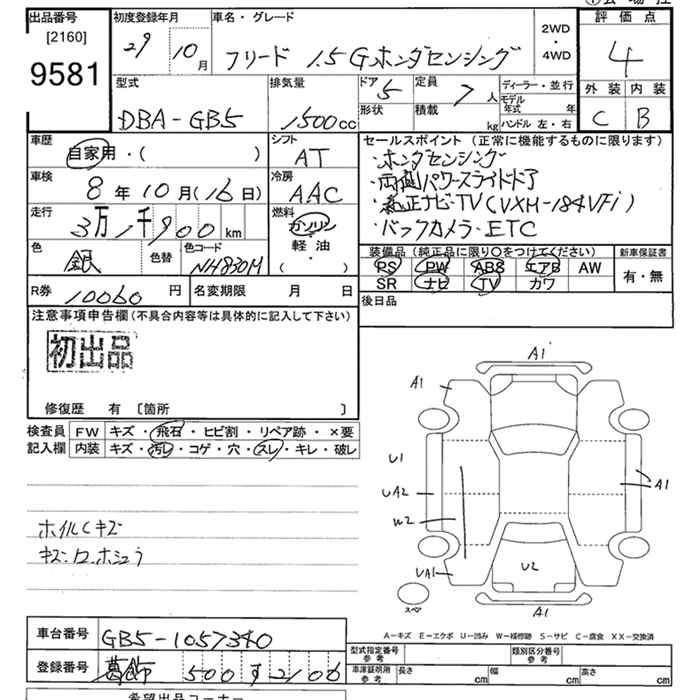 出品番号 [2160] 9581
初度登録年月 29 10月
車名・グレード フリード 1.5 G.ホンダセンシング
2WD・4WD
評価点 4
外装 C 内装 B
型式 DBA-GB5
排気量 1500cc
ドア 5
形状
定員 7人
積載 kg
ディーラー・並行
モデル年式 年
ハンドル 左・右
車歴 自家用・( )
シフト AT
車検 8年10月(16日)
冷房 AAC
走行 3万1千900km
燃料 ガソリン
軽油
( ・ )
色 銀
色替
色コード NH830M
セールスポイント (正常に機能するものに限ります)
・ホンダセンシング
・両側パワースライドドア
・純正ナビ・TV(VXM-184VFi)
・バックカメラ・ETC
装備品 (純正品に限り○をつけてください)
PS PW ABS エアB AW
SR ナビ TV カワ
新車保証書 有・無
R券 10060円
名変期限 月 日
後日品
注意事項申告欄(不具合内容等は具体的に記入して下さい)
初出品
修復歴 有 〔箇所 〕
検査員記入欄
FW キズ・飛石・ヒビ割・リペア跡・×要
内装 キズ・汚レ・コゲ・穴・スレ・キレ・破レ
ホイルCキズ
A1
A1
U1
UA2
W2
UA1
U2
A1
A1
スペア
A-キズ E-エクボ U-凹み W-補修跡 S-サビ C-腐食 XX-交換済
車台番号 GB5-1057340
登録番号 葛飾 500 す 2106
型式指定番号 参考
類別区分番号 参考
車庫証明用 参考 長さ cm 幅 cm 高さ cm
希望出品コーナー